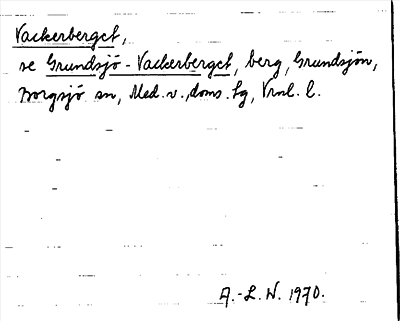 Vackerberget,
se Grundsjö - Vackerberget, berg, Grundsjön,
Borgsjö sn, Med. v., doms. lg, Vrnl. l.
A.-L. W. 1970.